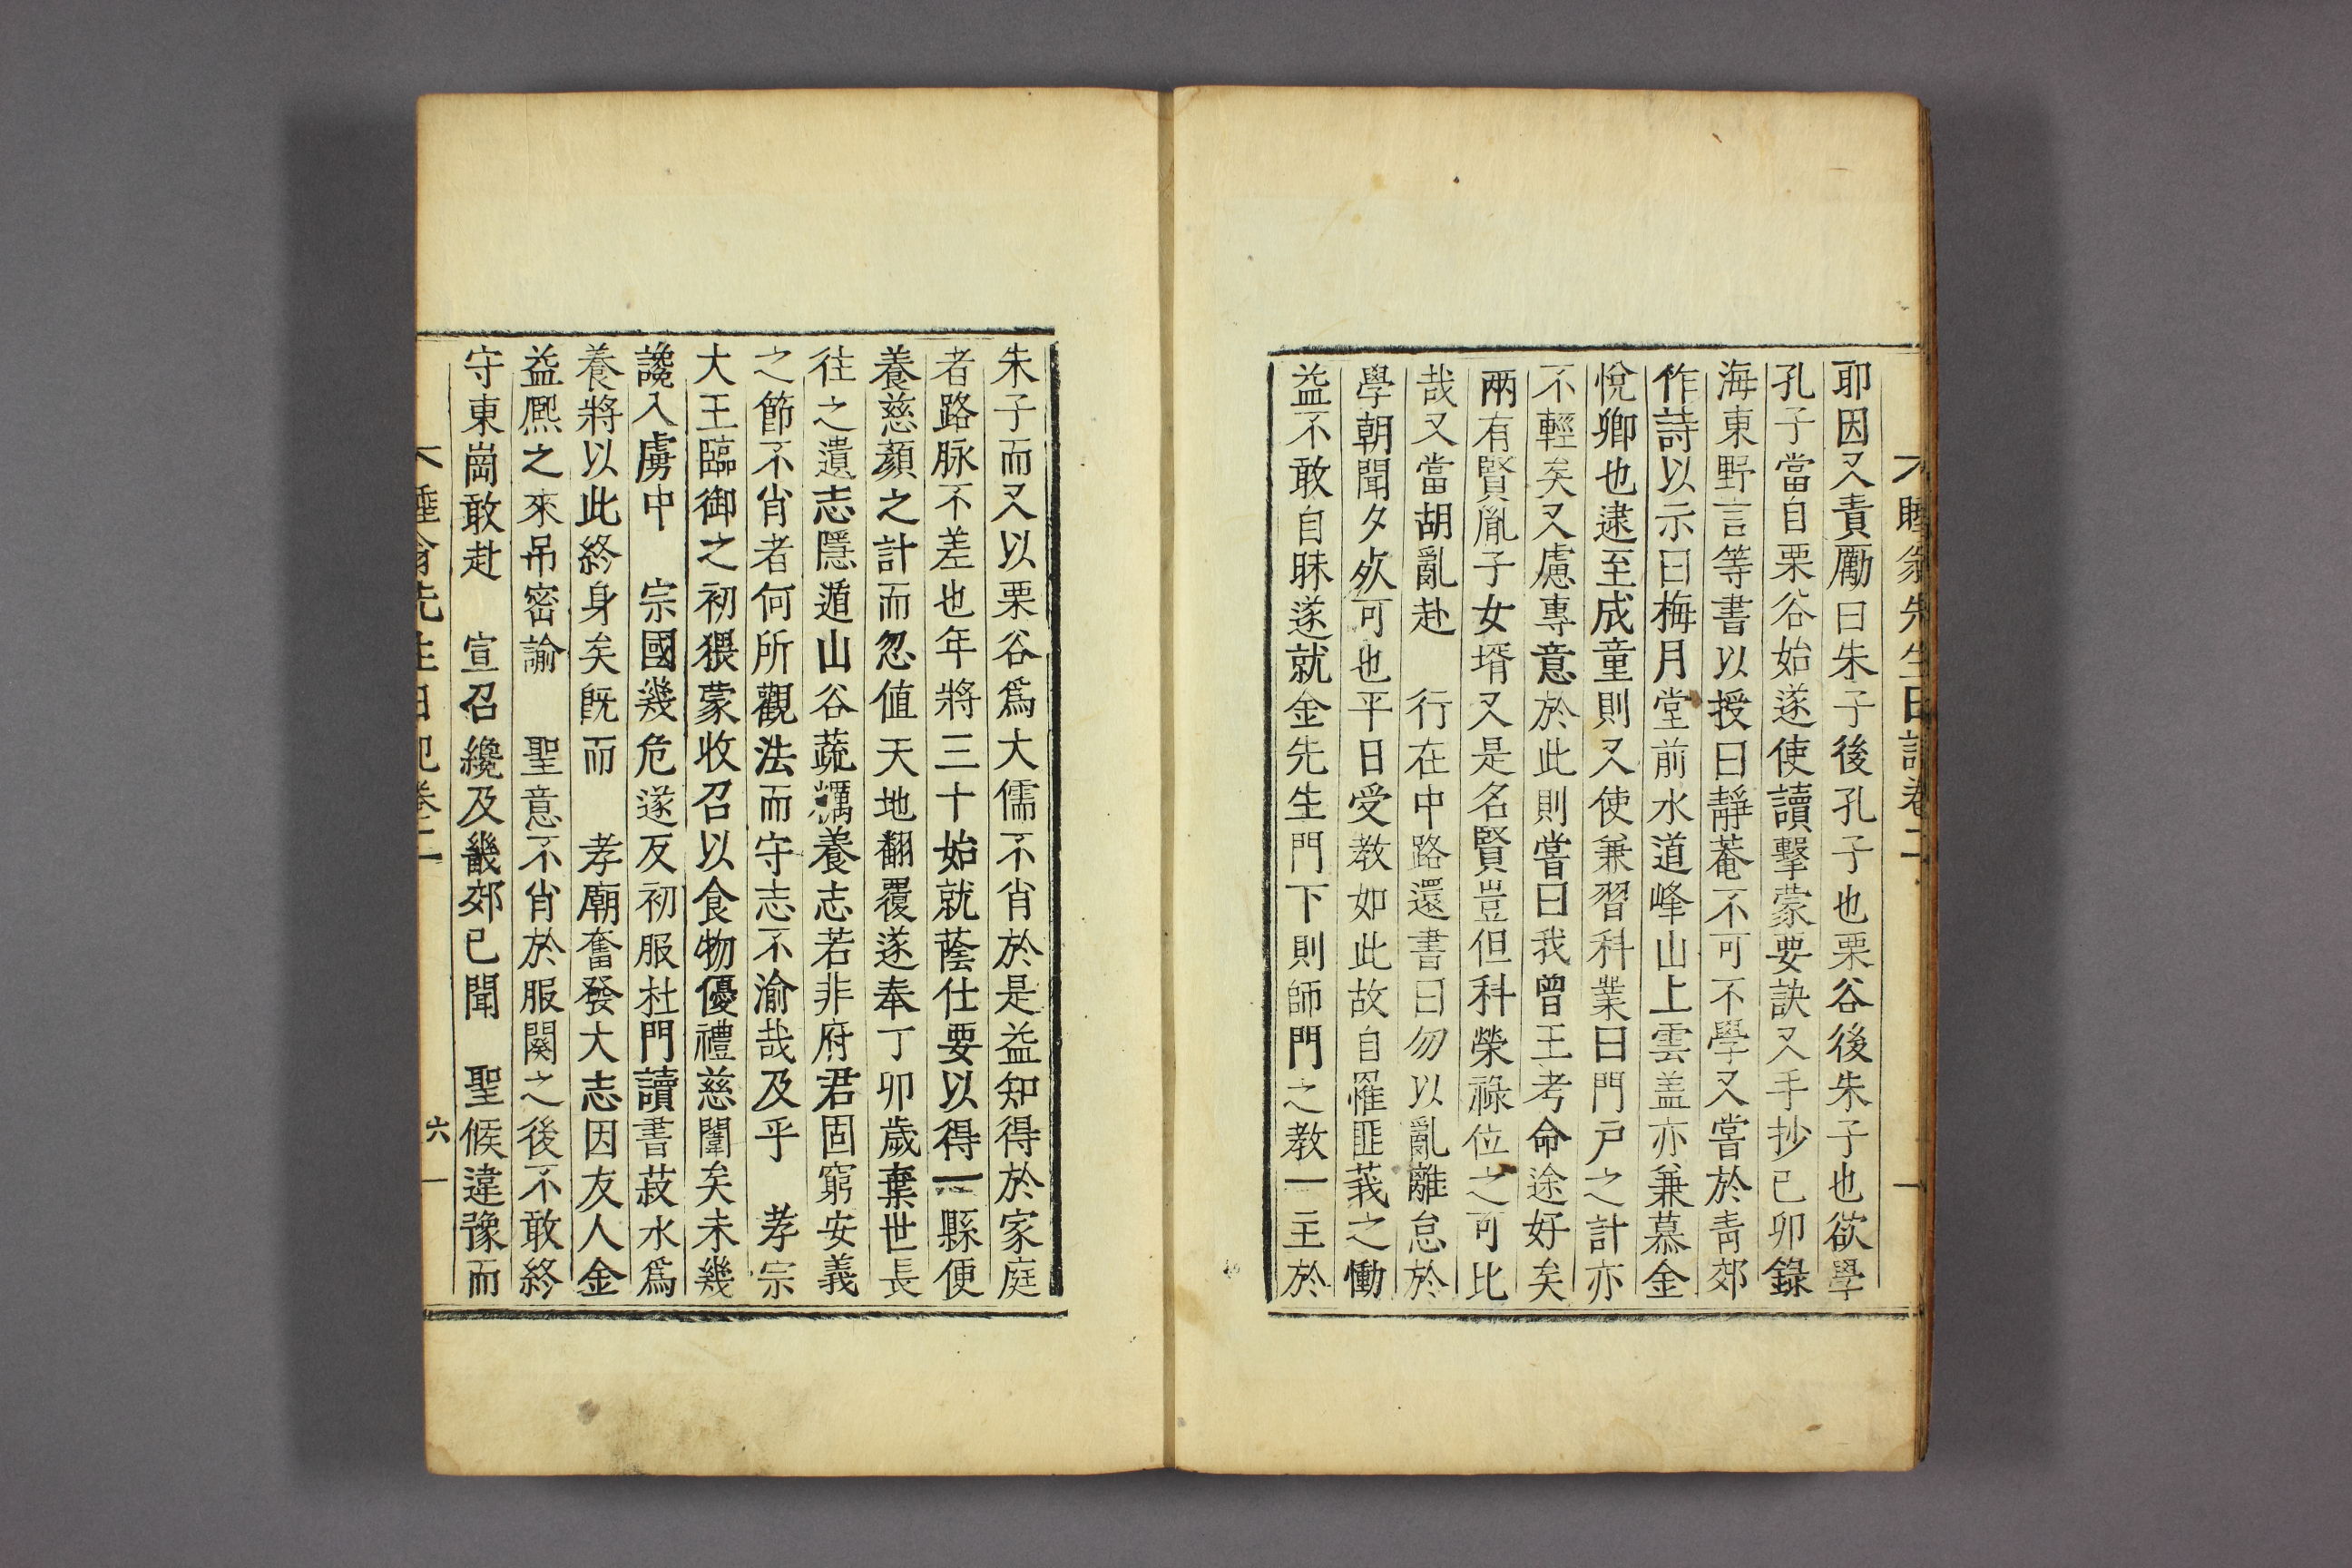 睡翁先生日記卷二
耶因又責勵曰朱子後孔子也栗谷後朱子也欲學
孔子當自栗谷始遂使讀擊蒙要訣又手抄己卯錄
海東野言等書以授曰靜菴不可不學又嘗於靑郊
作詩以示曰梅月堂前水道峰山上雲盖亦兼慕金
悅卿也逮至成童則又使兼習科業曰門戶之計亦
不輕矣又慮專意於此則嘗曰我曾王考命途好矣
兩有賢胤子女壻又是名賢豈但科榮祿位之可比
哉又當胡亂赴　行在中路還書曰勿以亂離怠於
學朝聞夕死可也平日受教如此故自罹匪莪之慟
益不敢自昧遂就金先生門下則師門之教一主於
朱子而又以栗谷爲大儒不肖於是益知得於家庭
者路脉不差也年將三十始就蔭仕要以得一縣便
養慈顏之計而忽値天地翻覆遂奉丁卯歲棄世長
往之遺志隱遁山谷蔬糲養志若非府君固窮安義
之節不肖者何所觀法而守志不渝哉及乎　孝宗
大王臨御之初猥蒙收召以食物優禮慈闈矣未幾
讒入虜中　宗國幾危遂反初服杜門讀書菽水爲
養將以此終身矣旣而　孝廟奮發大志因友人金
益熙之來吊密諭　聖意不肖於服闋之後不敢終
守東崗敢赴　宣召纔及畿郊已聞　聖候違豫而
睡翁先生日記卷二　六